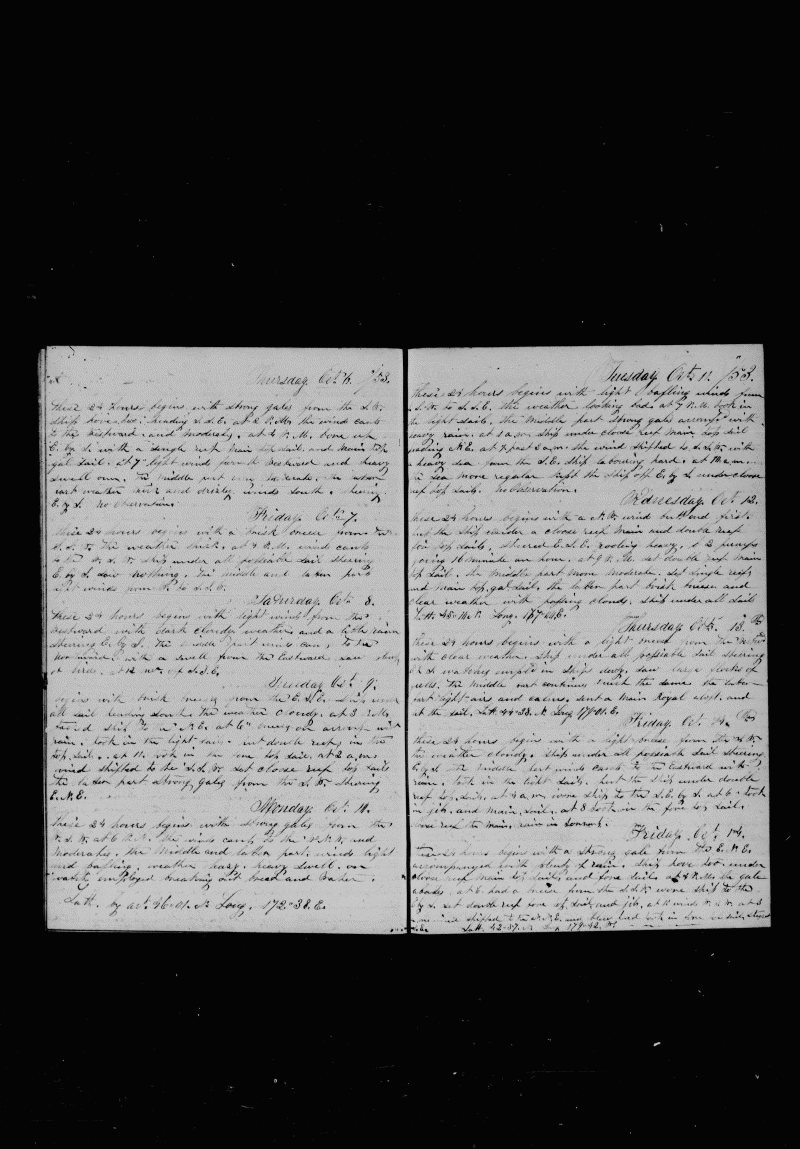 Thursday Oct 6. /53.
these 24 hours begins with strong gales from the S.W.
ship hove too, heading S.S.E. at 2 P.M. the wind cants
to the Westward and moderates, at 4 P.M. bore up
E. by S. with a single reef Main top sail and Main top
gal sail. at 7 light wind from the Westward and heavy
swell on. the middle part moderate. the later
part weather and drizly winds South. steering
E. by S. No Observation.
Friday Oct. 7.
these 24 hours begins with a brisk breeze from the
S.S.W. the weather thick. at 4 P.M. wind cants
to the ship under all possiable sail steering
E. by S. saw nothing. the middle and later part
light winds from to S.S.E.
Saturday Oct. 8.
these 24 hours begins with light winds from the
Westward with dark cloudy weather and a little rain
steering E. by S. the middle part winds cants to the
Northward with a swell from the Eastward saw
of birds. at 12 M. S.S.E.
Sunday Oct. 9.
begins with brisk breeze from the E.S.E. ship under
all sail heading South. the weather cloudy. at 3 P.M.
tacked ship to N.E. at 6 with
rain. took in the light sails. put double reefs in the
top sails. at 11 took in top sail. at 2 a.m.
wind shifted to the S.S.W. set close reef top sails
the later part strong gales from the S.W. steering
E.N.E.
Monday. Oct. 10.
these 24 hours begins with strong gales from the
W.S.W. at 6 P.M. the winds cants to the N.N.W. and
moderates, the Middle and later part winds light
and bafling, weather hazy. heavy swell on
watch employed breaking out bread and water.
Latt. by act. 46-01. N Long. 172-38. E.
Tuesday Oct. 11. /53.
these 24 hours begins with light bafling winds from
S.W. to S.S.E. the weather looking bad. at 7 P.M. took in
the light sails. the middle part strong gales with
heavy rain. at 1 a.m. ship under close reef main top sail
heading N.E. at past 2 a.m. the wind shifted to S.S.W. with
a heavy sea from the S.E. ship labouring hard. at 10 a.m.
the sea more regular kept the ship off E. by S. under close
reef top sails. No Observation.
Wednesday. Oct. 12.
these 24 hours begins with a N.W. wind
put the ship under a close reef Main and double reef
for top sails, steered E.S.E. rooling heavy, 2 pumps
going 16 minute an hour. at 9 P.M. set double reef main
top sail. the middle part more moderate. set single reefs
and main top gal sail. the later part brisk breeze and
clear weather with passing clouds. ship under all sail
Latt. 45- N. Long. E.
Thursday Oct. 13.th
these 24 hours begins with a light breeze from the
with clear weather. ship under all possiable sail steering
E.S. watch employed in ships duty, saw large flocks of
gulls. the middle part continues much the same. the later
part light airs and calms. bent a main Royal and
set the sail. Latt. 44-33. N. Long 179-01. E.
Friday. Oct. 14.th
these 24 hours begins with a light breeze from the S.W.
the weather cloudy. ship under all possiable sail steering
the middle part winds cants to the Eastward with
rain. took in the light sails, put the ship under double
reef top sails. at 4 a.m. wore ship to the S.E. by S. at 6 took
in jib, and main sails. at 8 took in the fore top sail
close reef the main. rain in torrents.
Friday. Oct. 14.
these 24 hours begins with a strong gale from the E.N.E.
accompanied with plenty of rain. ship hove too under
close reef main top sails, and fore sails. at 4 P.M. the gale
abates. at 6 had a breeze from the S.S.W. wore ship to the
E by S. set double reef fore top sail and jib, at 11 winds W.S.W. at 3
a.m. wind shifted to the N.N.E. and blew hard took in
Latt. 42-57. N Long 179-42. W.